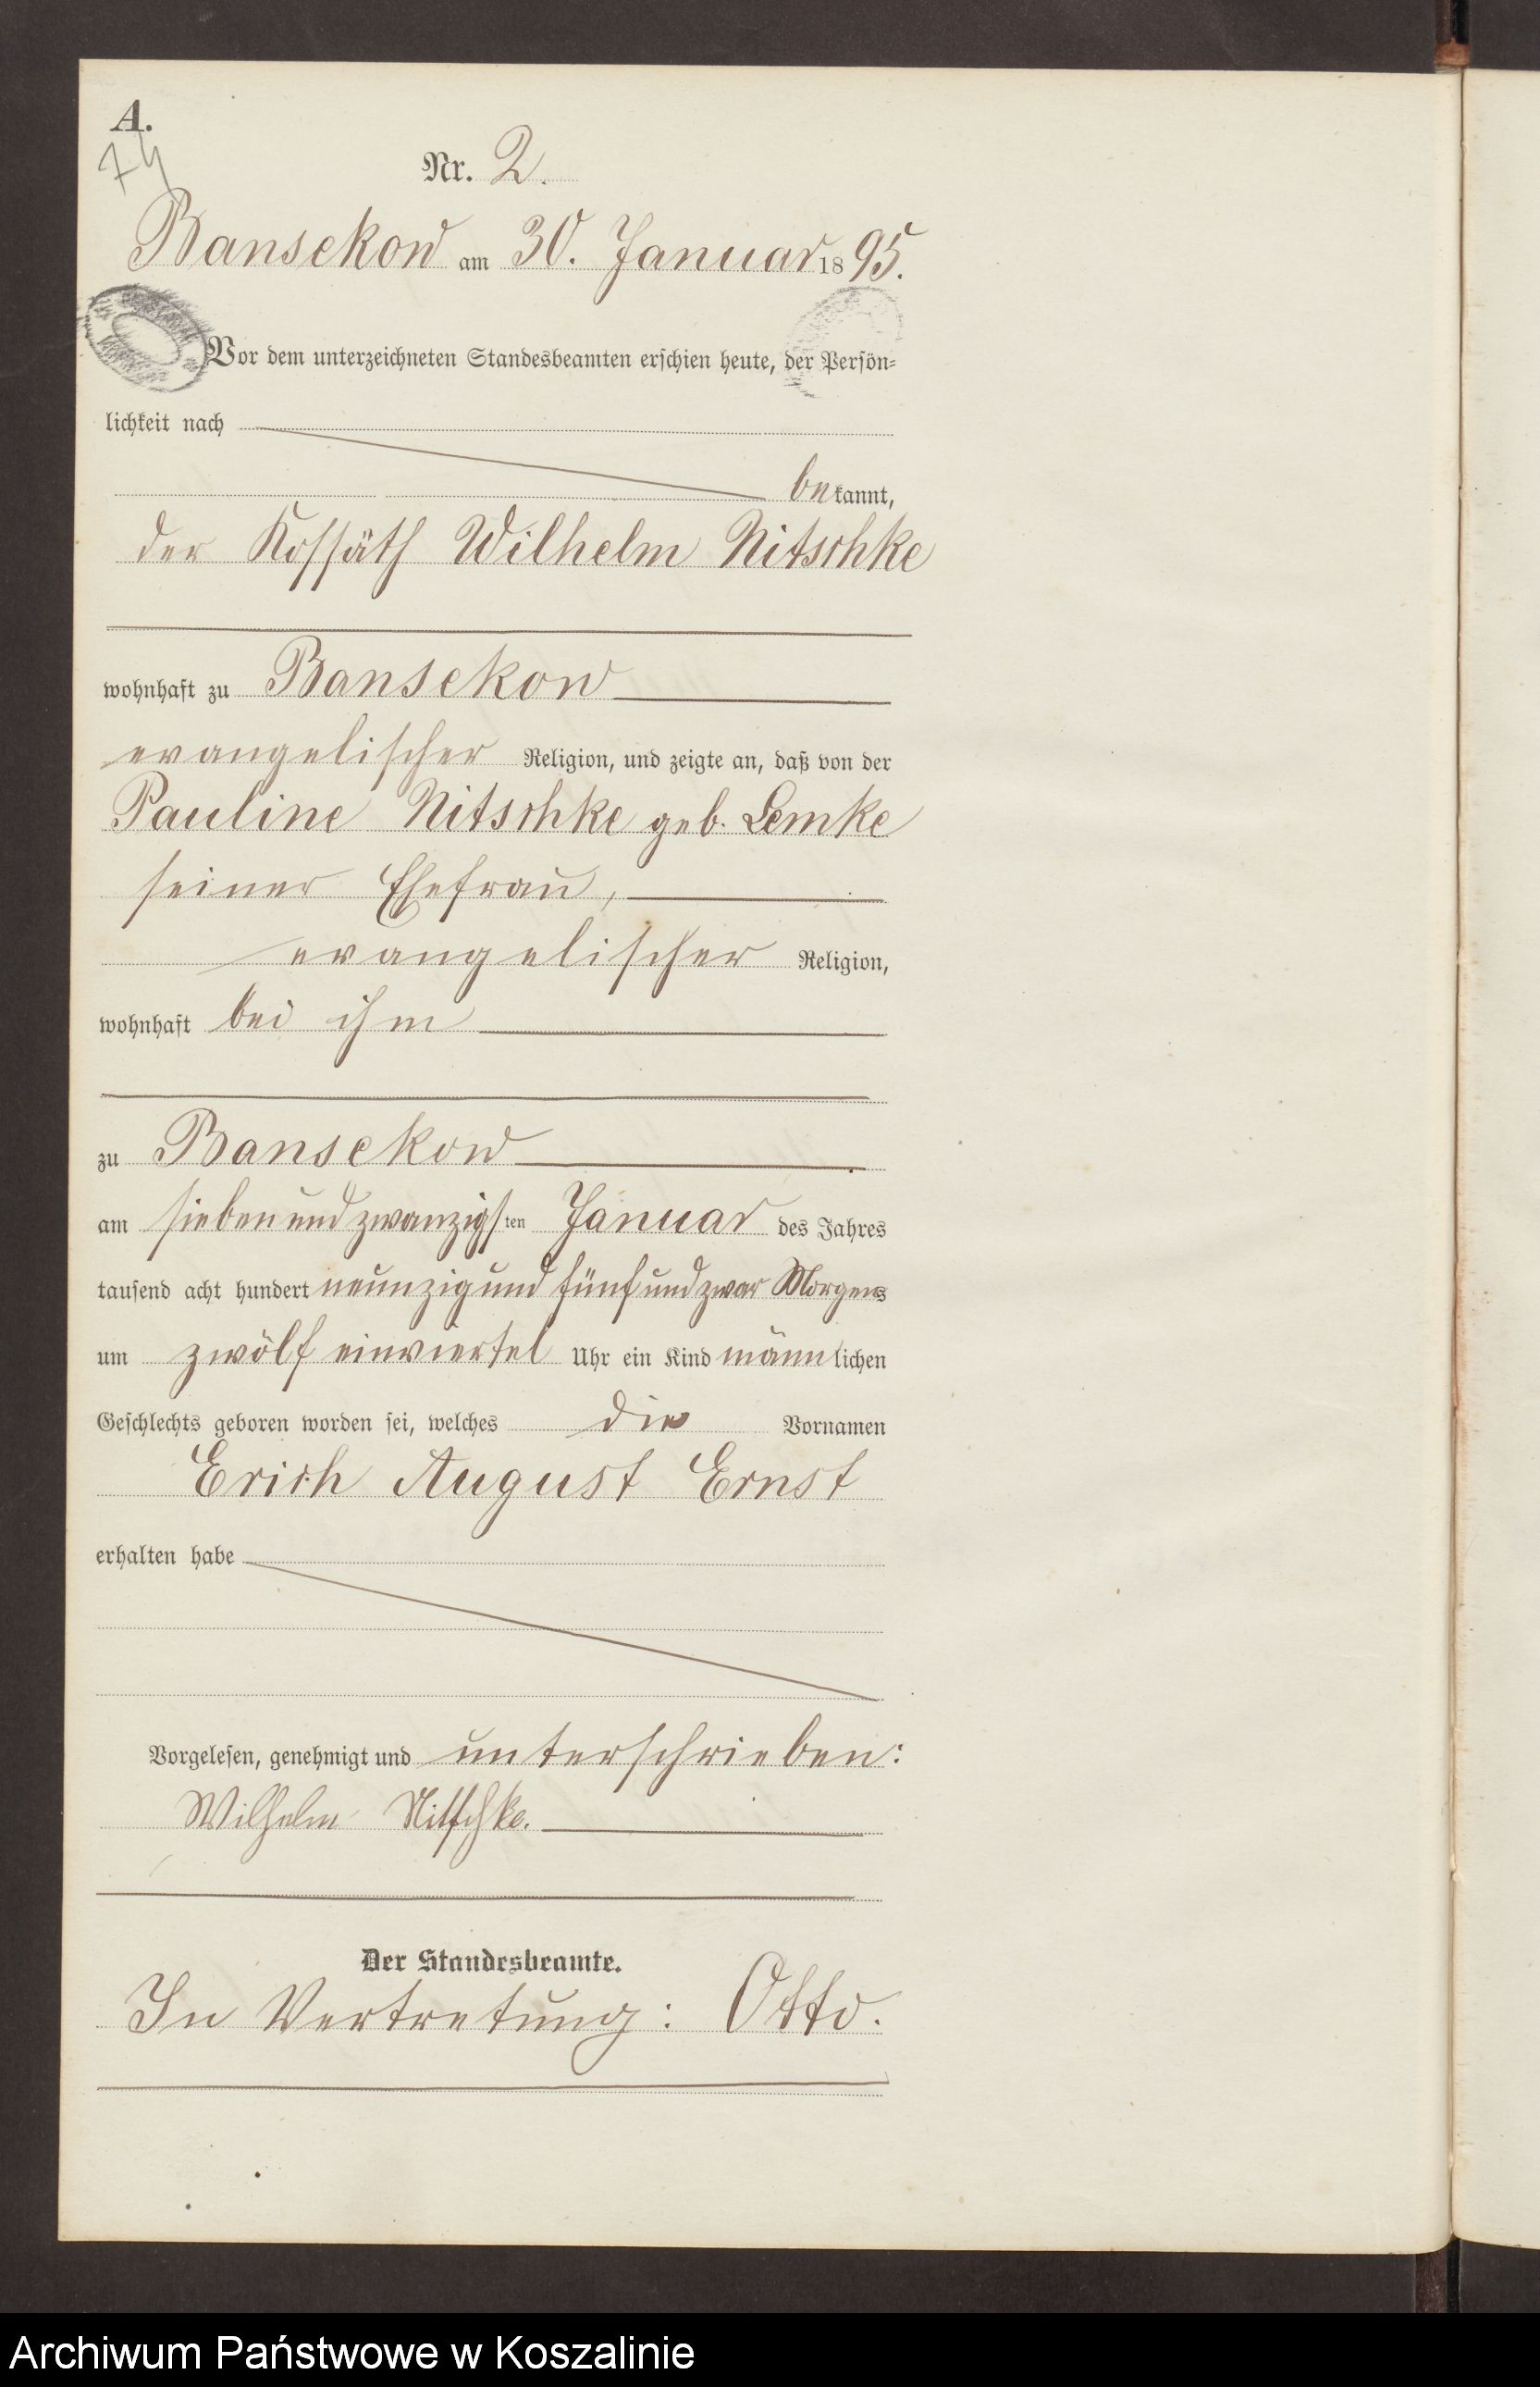 A.
74
Nr. 2.
Bansekow am 30. Januar 1895.
Vor dem unterzeichneten Standesbeamten erschien heute, der Persön-
lichkeit nach
bekannt,
der Kossäth Wilhelm Nitschke
wohnhaft zu Bansekow
evangelischer Religion, und zeigte an, daß von der
Pauline Nitschke geb. Lemke
seiner Ehefrau,
evangelischer Religion,
wohnhaft bei ihm
zu Bansekow
am siebenundzwanzigsten Januar des Jahres
tausend acht hundert neunzig und fünf und zwar Morgens
um zwölf einviertel Uhr ein Kind männlichen
Geschlechts geboren worden sei, welches die Vornamen
Erich August Ernst
erhalten habe
Vorgelesen, genehmigt und unterschrieben:
Wilhelm Nitschke.
Der Standesbeamte.
In Vertretung: Otto.
Archiwum Państwowe w Koszalinie